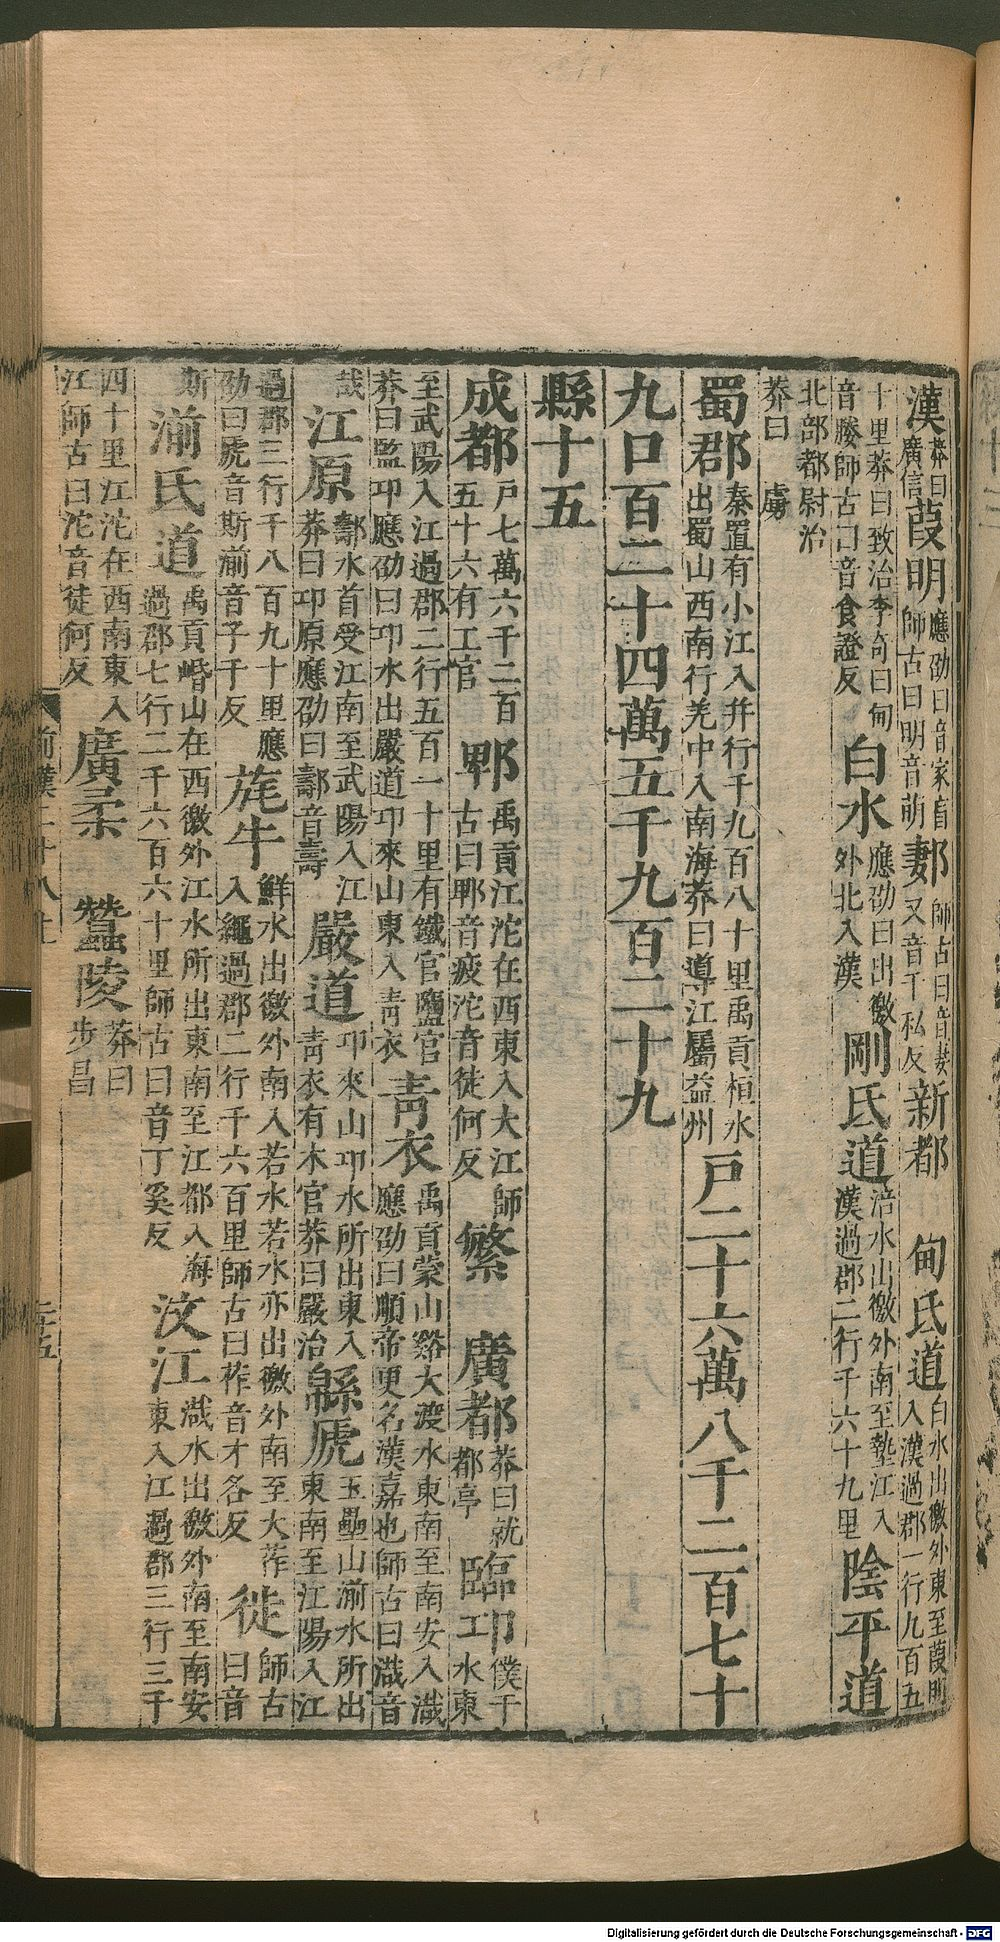 漢莽曰廣信葭明應劭曰音家盲師古曰明音萌郪師古曰音妻又音千私反新都 甸氐道白水出徼外東至葭明入漢過郡一行九百五
十里莽曰致治李奇曰甸音媵師古曰音食證反白水應劭曰出徼外北入漢剛氐道涪水出徼外南至墊江入漢過郡二行千六十九里陰平道
北部都尉治莽曰 虜
蜀郡秦置有小江入幷行千九百八十里禹貢桓水出蜀山西南行羌中入南海莽曰導江屬益州戶二十六萬八千二百七十
九口百二十四萬五千九百二十九
縣十五
成都戶七萬六千二百五十六有工官郫禹貢江沱在西東入大江師古曰郫音疲沱音徒何反繁 廣都莽曰就都亭臨邛僕千工水東
至武陽入江過郡二行五百一十里有鐵官鹽官莽曰監邛應劭曰邛水出嚴道邛來山東入靑衣靑衣禹貢蒙山谿大渡水東南至南安入渽應劭曰順帝更名漢嘉也師古曰渽音
哉江原䣯水首受江南至武陽入江莽曰邛原應劭曰䣯音壽嚴道邛來山邛水所出東入靑衣有木官莽曰嚴治緜虒玉壘山湔水所出東南至江陽入江
過郡三行千八百九十里應劭曰虒音斯湔音子千反旄牛鮮水出徼外南入若水若水亦出徼外南至大莋入繩過郡二行千六百里師古曰莋音才各反徙師古曰音
斯湔氐道禹貢㟭山在西徼外江水所出東南至江都入海過郡七行二千六百六十里師古曰音丁奚反汶江渽水出徼外南至南安東入江過郡三行三千
四十里江沱在西南東入江師古曰沱音徒何反廣柔 蠶陵莽曰步昌
前漢二十八上
二十五
Digitalisierung gefördert durch die Deutsche Forschungsgemeinschaft - DFG